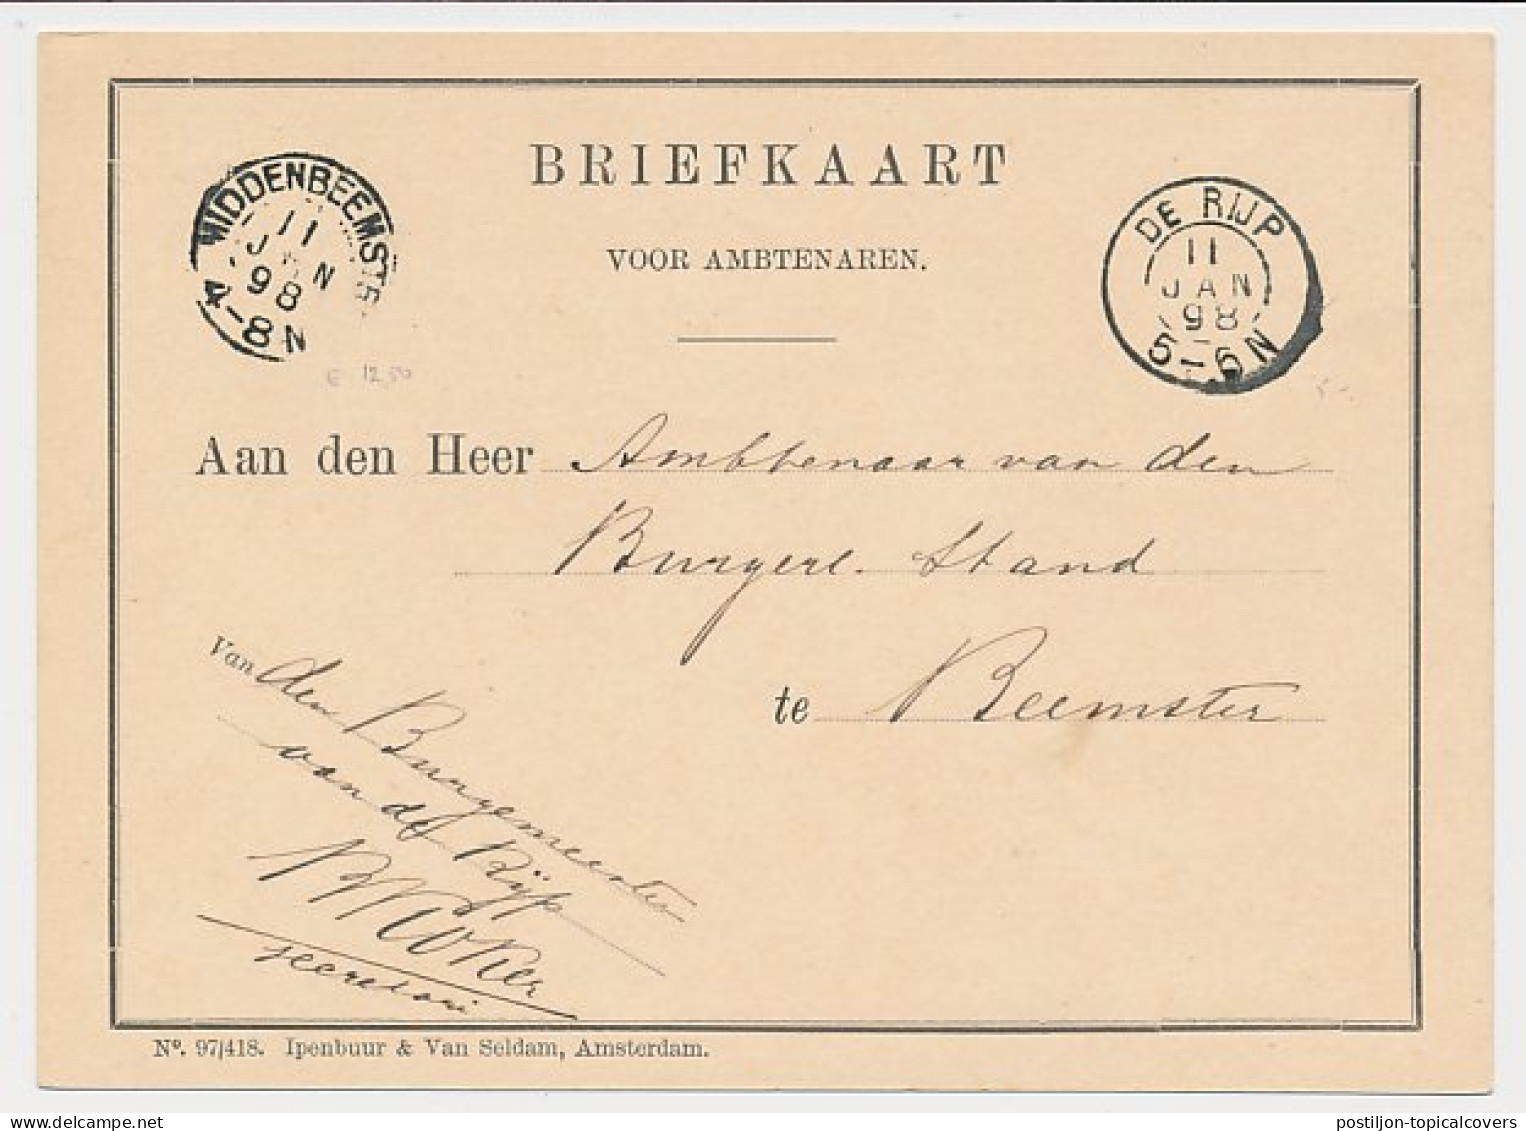 BRIEFKAART
VOOR AMBTENAREN.
MIDDENBEEMSTE
11
JAN
98
4-8N
DE RIJP
11
JAN
98
5-6N
€ 12,50
Aan den Heer Ambtenaar van den
Burgerl. Stand
te Beemster
Van den Burgemeester
van de Rijp
secretari
Nº. 97/418. Ipenbuur & Van Seldam, Amsterdam.
postiljon-topicalcovers